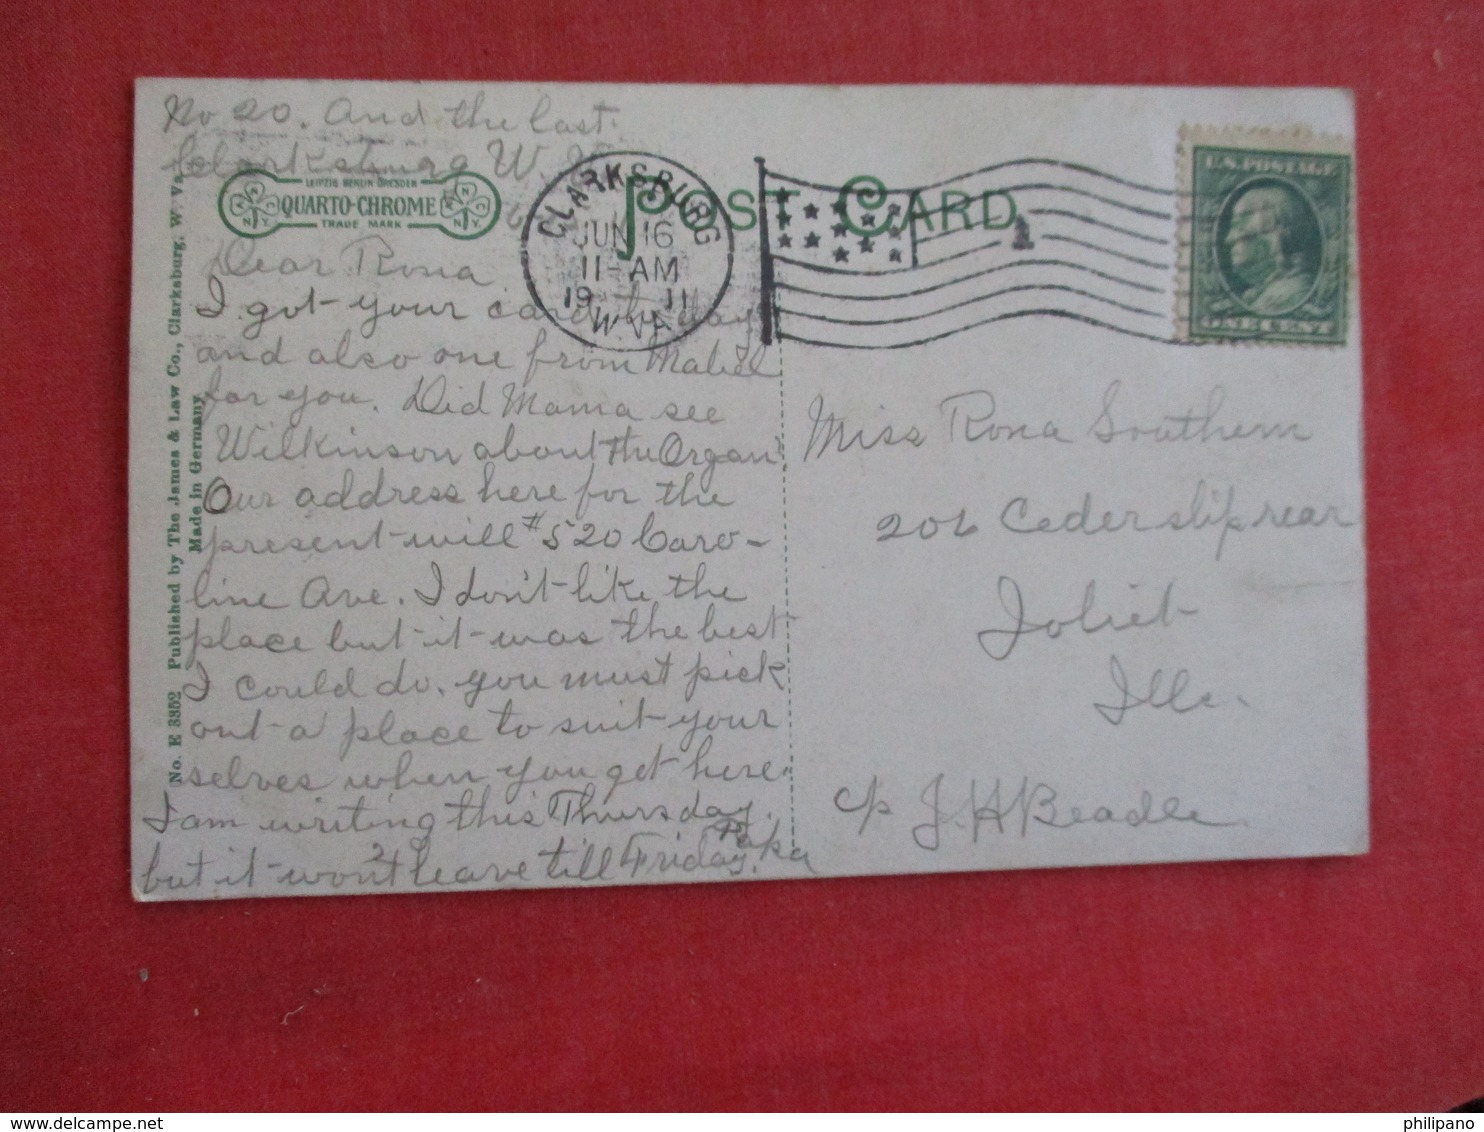 No 20. And the last.
Clarksburg W. Va
LEIPZIG BERLIN DRESDEN
QUARTO-CHROME
TRADE MARK
POST CARD
CLARKSBURG
JUN 16
11-AM
1911
W. VA.
1
U.S. POSTAGE
ONE CENT
Dear Rona
I got your card to day
and also one from Mabel
for you. Did Mama see
Wilkinson about the Organ.
Our address here for the
present will #520 Caro-
line Ave. I don't like the
place but it was the best
I could do. you must pick
out a place to suit your
selves when you get here.
I am writing this Thursday.
but it won't leave till Friday.
Papa
Miss Rona Southern
206 Ceder slip rear
Joliet
Ills.
c/o J. H Beadle
No. E 3352 Published by The James & Law Co., Clarksburg, W. Va.
Made in Germany
philipano
delcampe.net